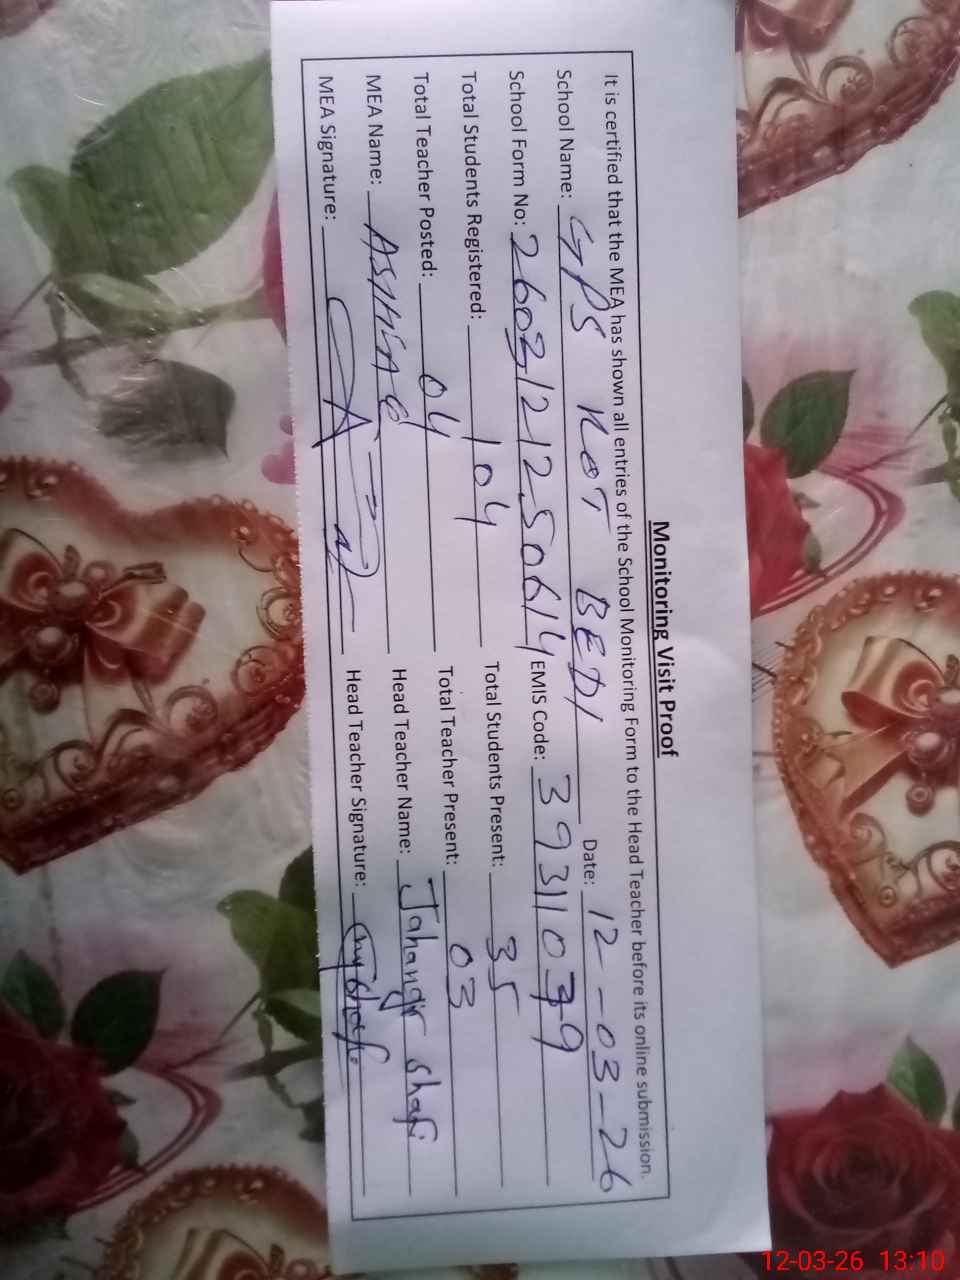 Monitoring Visit Proof
It is certified that the MEA has shown all entries of the School Monitoring Form to the Head Teacher before its online submission.
School Name: GPS KOT BEDI Date: 12-03-26
School Form No: 2603121250614 EMIS Code: 39311039
Total Students Registered: 104 Total Students Present: 35
Total Teacher Posted: 04 Total Teacher Present: 03
MEA Name: Head Teacher Name: Jahangir Shafi
MEA Signature: Head Teacher Signature:
12-03-26 13:10